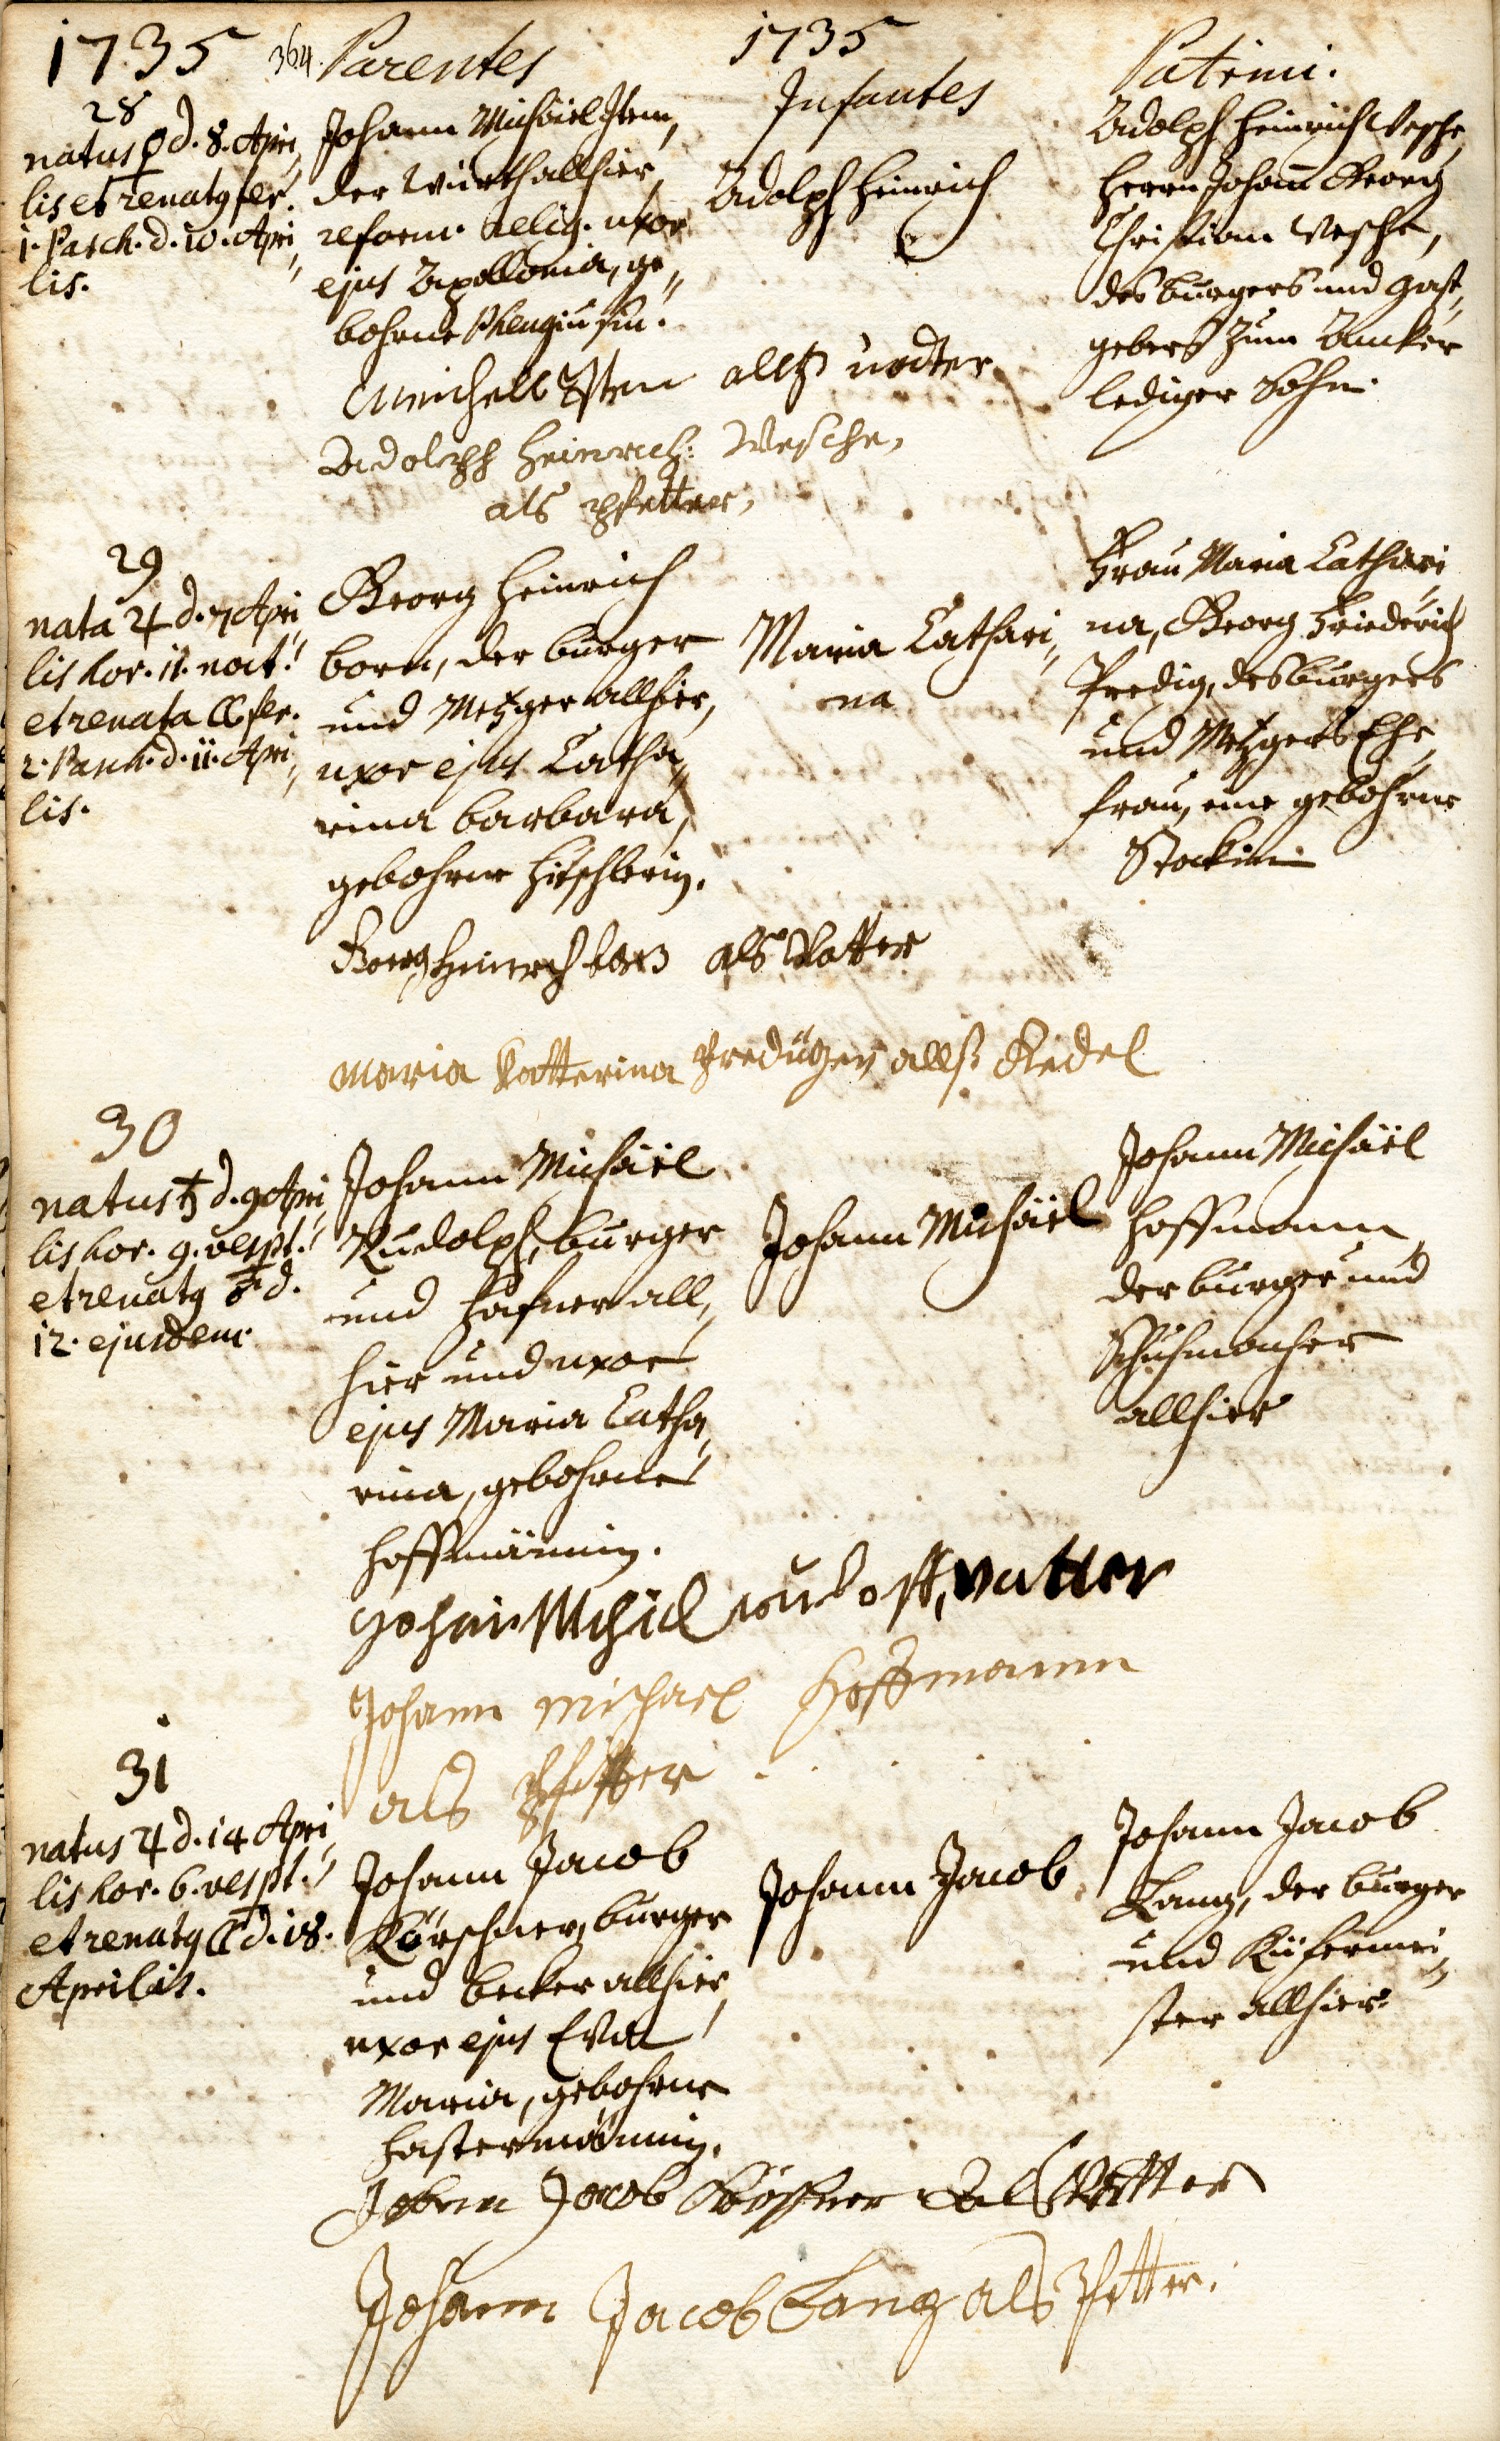 1735 364. Parentes 1735 Infantes Patrini.
28
natus ♀ d. 8. Apri„
lis et renatq fer.
1. Pasch. d. 10. Apri„
lis.
Johann Michäel Item,
der Würth allhier,
reform. Relig. uxor
ejus Apollonia, ge„
bohrne
Adolph Heinrich
Adolph Heinrich Wesche,
Herrn Johann Georg
Christian Wesche,
des burgers und Gast„
gebers zum Ancker
lediger Sohn.
Michell Item allß
Adolph Heinrich: Wesche,
als Pfetter,
29
nata ♃ d. 7 Apri„
lis hor. 11. noct.
et renata ☾ fer.
2. Pasch. d. 11. Apri„
lis.
Georg Heinrich
born, der burger
und Metzger allhier,
uxor ejus Catha„
rina barbara,
gebohrne Hirschlerin.
Maria Cathari„
na
Frau Maria Cathari„
na, Georg Friederich
Predig, des burgers
und Metzgers Ehe„
frau, eine gebohrne
Stockin
Georg Heinrich born als Vatter
Maria Katterina Predüger allß Gedel
30
natus ♄ d. 9 Apri„
lis hor. 9. vespt.
et renatq ♂ d.
12. ejusdem.
Johann Michäel
Rudolph, burger
und Hafner all„
hier und uxor
ejus Maria Catha„
rina, gebohrne
Hoffmännin.
Johann Michäel
Johann Michäel
Hoffmann,
der burger und
Schuhmacher
allhier
Johan Michel rudolff, vatter
Johann Michael Hoffmann
als Pfetter
31
natus ♃ d. 14 Apri„
lis hor. 6. vespt.
et renatq ☾ d. 18.
Aprilis.
Johann Jacob
Körschner, burger
und becker allhier,
uxor ejus Eva
Maria, gebohrne
Hastermännin.
Johann Jacob
Johann Jacob
Lang, der burger
und Küfermei„
ster allhier.
Johann Jacob Körschner Als Vatter
Johann Jacob Lang als Pfetter.